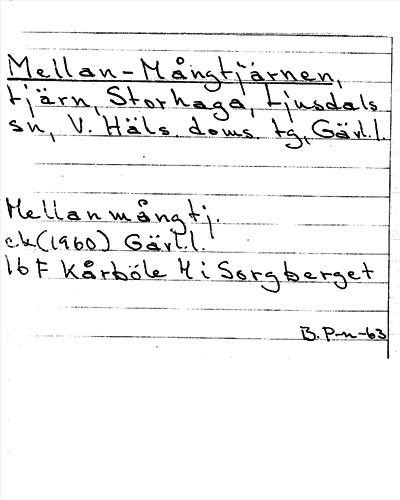 Mellan-Mångtjärnen,
tjärn, Storhaga, Ljusdals
sn, V. Häls. doms. tg, Gävl.l.
Mellanmångtj.
ek (1960) Gävl.l.
16 F Kårböle 4 i Sorgberget
B. P-n-63